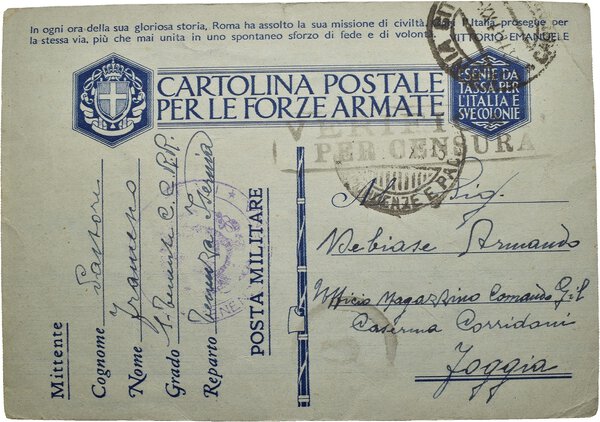 In ogni ora della sua gloriosa storia, Roma ha assolto la sua missione di civiltà. Con l'Italia prosegue per
la stessa via, più che mai unita in uno spontaneo sforzo di fede e di volontà. VITTORIO EMANUELE
CARTOLINA POSTALE
PER LE FORZE ARMATE
ESENTE DA
TASSA PER
L'ITALIA E
SVE COLONIE
VERIFI
PER CENSURA
Mittente
Cognome Santori
Nome Francesco
Grado S. Tenente C.C. R.R.
Reparto Tenenza Isernia
POSTA MILITARE
Al Sig.
Debiase Armando
Ufficio Magazzino Comando G.i.l
Caserma Corridoni
Foggia